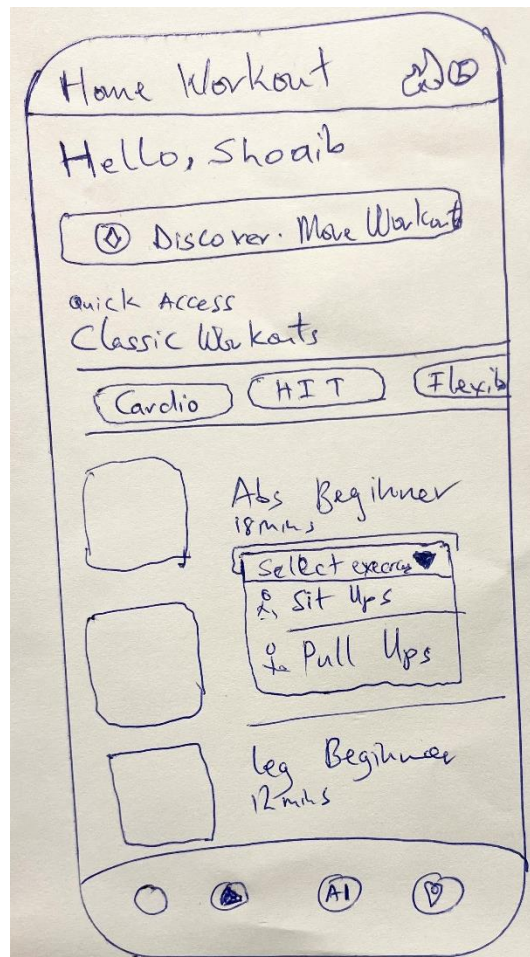 Home Workout 5
Hello, Shoaib
Discover. More Workout
Quick Access
Classic Workouts
Cardio HIT Flexib
Abs Beginner
18 mins
Select
Sit Ups
Pull Ups
Leg Beginner
12 mins
AI